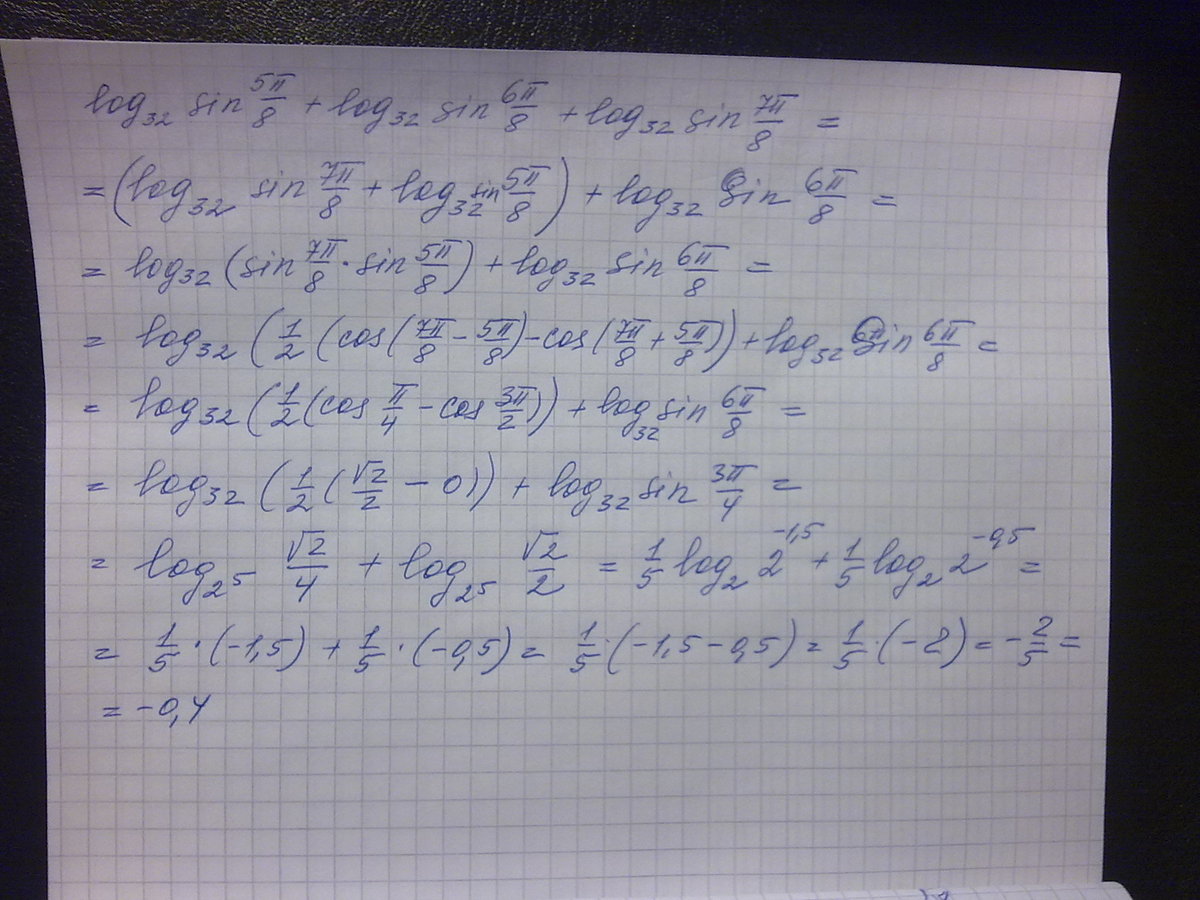 log₃₂ sin 5π/8 + log₃₂ sin 6π/8 + log₃₂ sin 7π/8 =
= (log₃₂ sin 7π/8 + log₃₂ sin 5π/8) + log₃₂ sin 6π/8 =
= log₃₂ (sin 7π/8 · sin 5π/8) + log₃₂ sin 6π/8 =
= log₃₂ (1/2 (cos (7π/8 − 5π/8) − cos (7π/8 + 5π/8))) + log₃₂ sin 6π/8 =
= log₃₂ (1/2 (cos π/4 − cos 3π/2)) + log₃₂ sin 6π/8 =
= log₃₂ (1/2 (√2/2 − 0)) + log₃₂ sin 3π/4 =
= log_{2^5} √2/4 + log_{2^5} √2/2 = 1/5 log₂ 2^{−1,5} + 1/5 log₂ 2^{−0,5} =
= 1/5 · (−1,5) + 1/5 · (−0,5) = 1/5 · (−1,5 − 0,5) = 1/5 · (−2) = −2/5 =
= −0,4